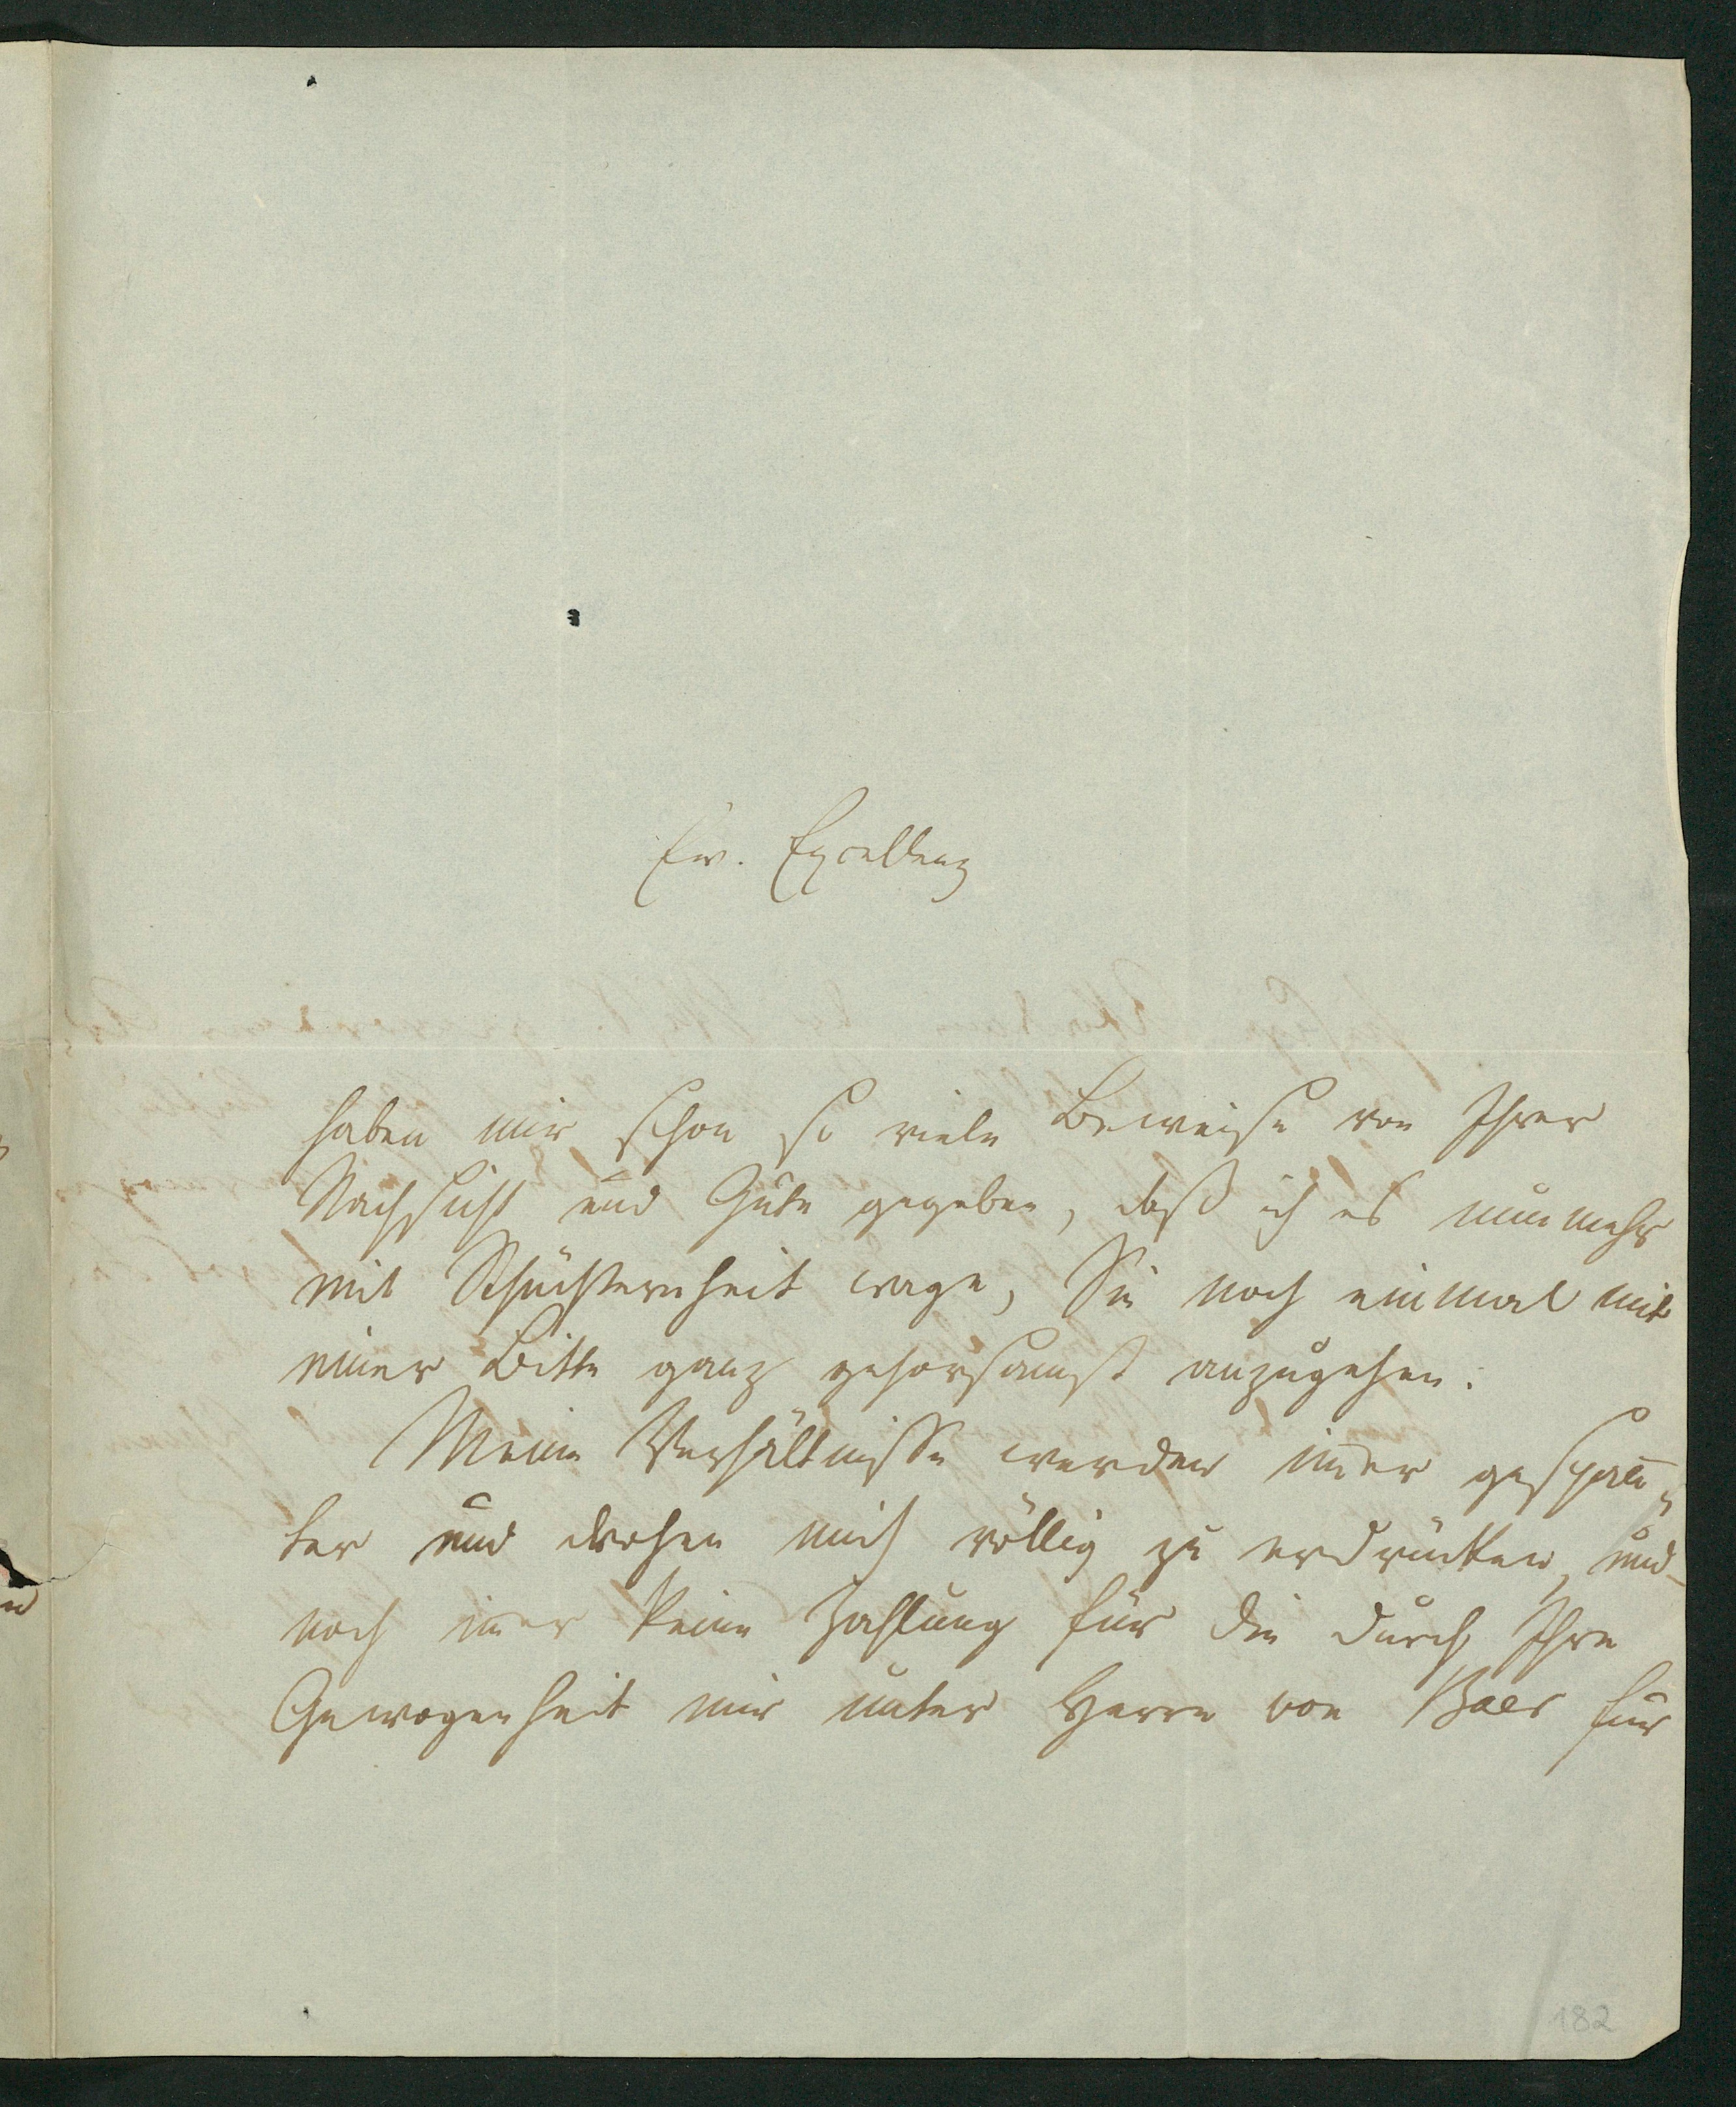 Ew. Excellenz
haben mir schon so viele Beweise von Ihrer
Nachsicht und Güte gegeben, daß ich es nunmehr
mit Schüchternheit wage, Sie noch einmal mit
einer Bitte ganz gehorsamst anzugehen:
Meine Verhältnisse werden im̅er gespan̅-
ter und drohen mich völlig zu erdrücken, und
noch im̅er keine Zahlung für die durch Ihre
Gewogenheit mir unter Herrn von Baer für
182